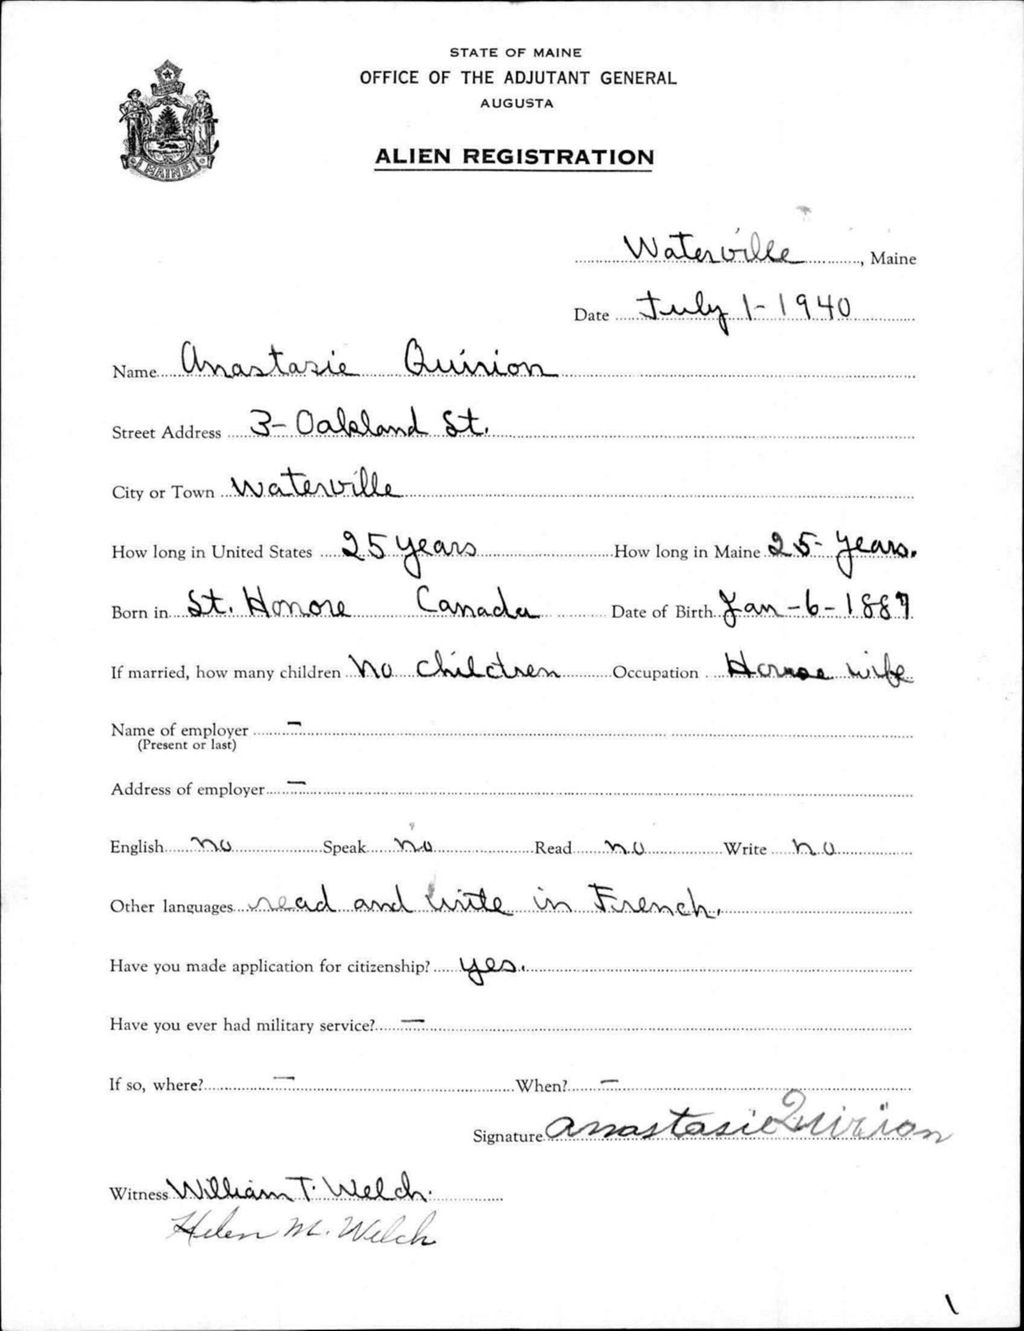 STATE OF MAINE
OFFICE OF THE ADJUTANT GENERAL
AUGUSTA
ALIEN REGISTRATION
MAINE
Waterville, Maine
Date July 1-1940
Name Anastasie Quirion
Street Address 3- Oakland St.
City or Town Waterville
How long in United States 25 years How long in Maine 25- years.
Born in St. Honore Canada Date of Birth Jan-6-1887
If married, how many children no children Occupation House wife
Name of employer –
(Present or last)
Address of employer –
English no Speak no Read no Write no
Other languages read and write in French.
Have you made application for citizenship? yes.
Have you ever had military service? –
If so, where? – When? –
Signature Anastasie Quirion
Witness William T. Welch.
Helen M. Welch